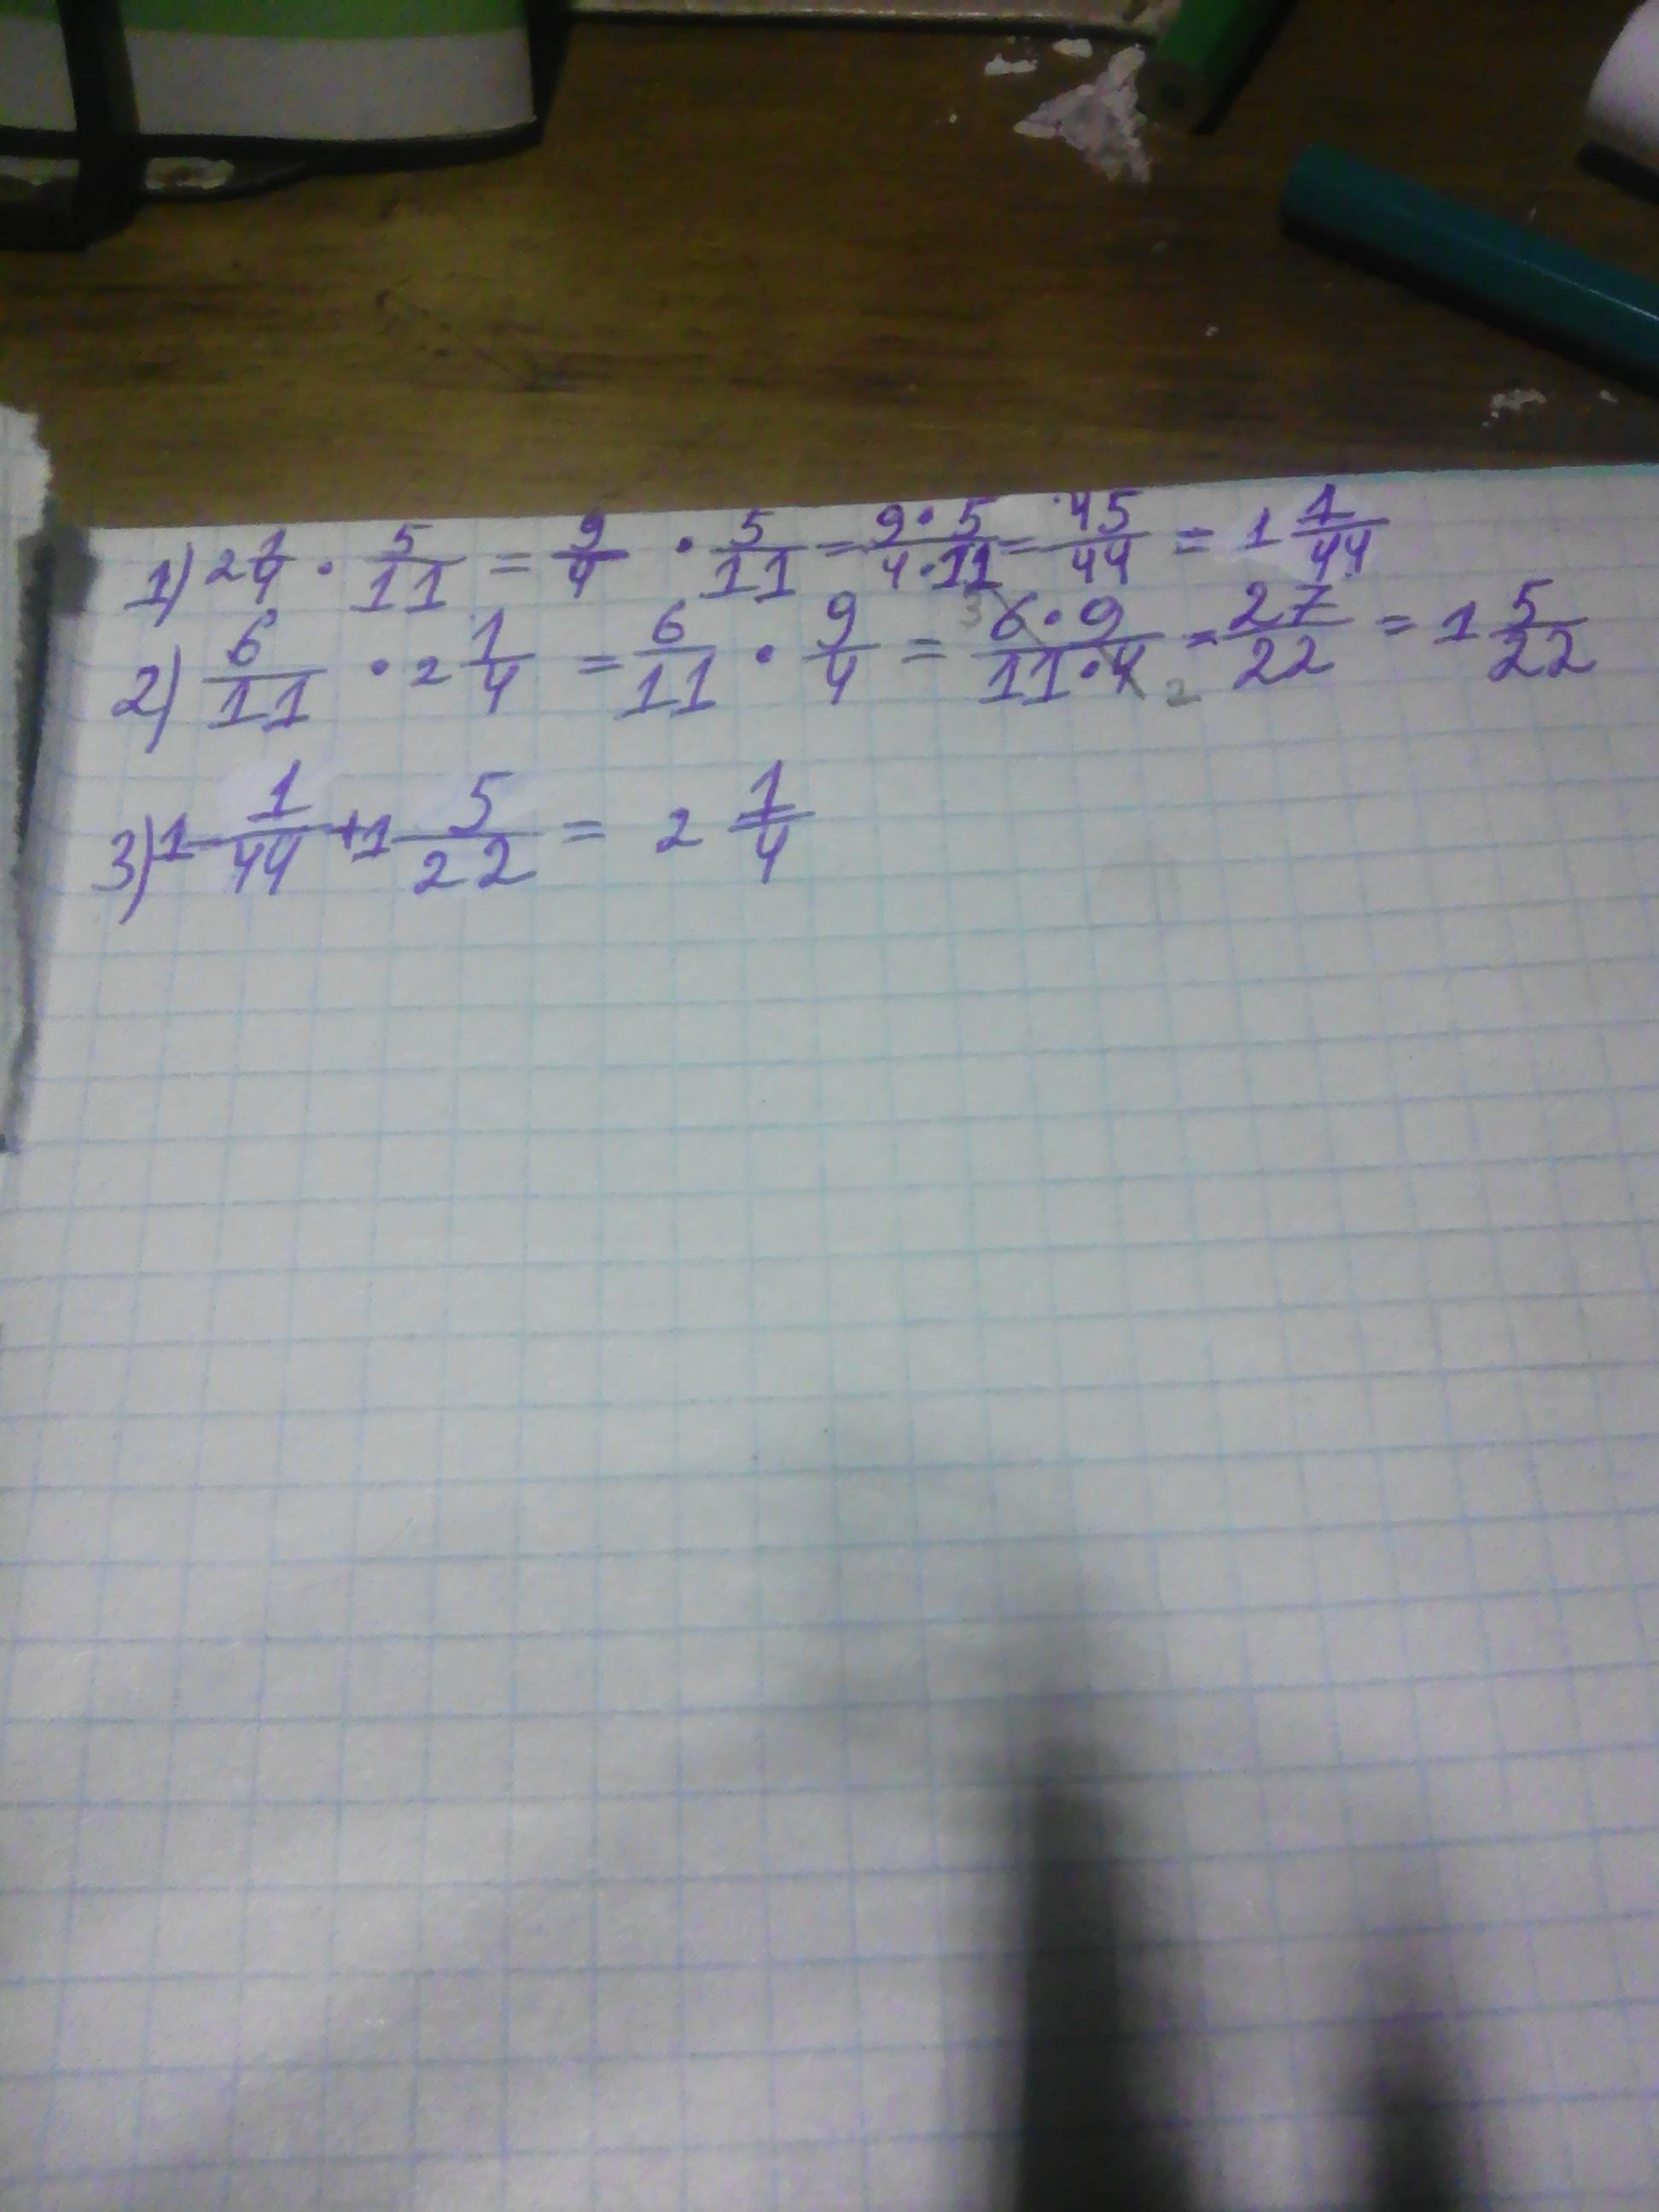 1) 2 1/4 · 5/11 = 9/4 · 5/11 = 9·5/4·11 = 45/44 = 1 1/44
2) 6/11 · 2 1/4 = 6/11 · 9/4 = 3 6·9/11·4 2 = 27/22 = 1 5/22
3) 1 1/44 + 1 5/22 = 2 1/4